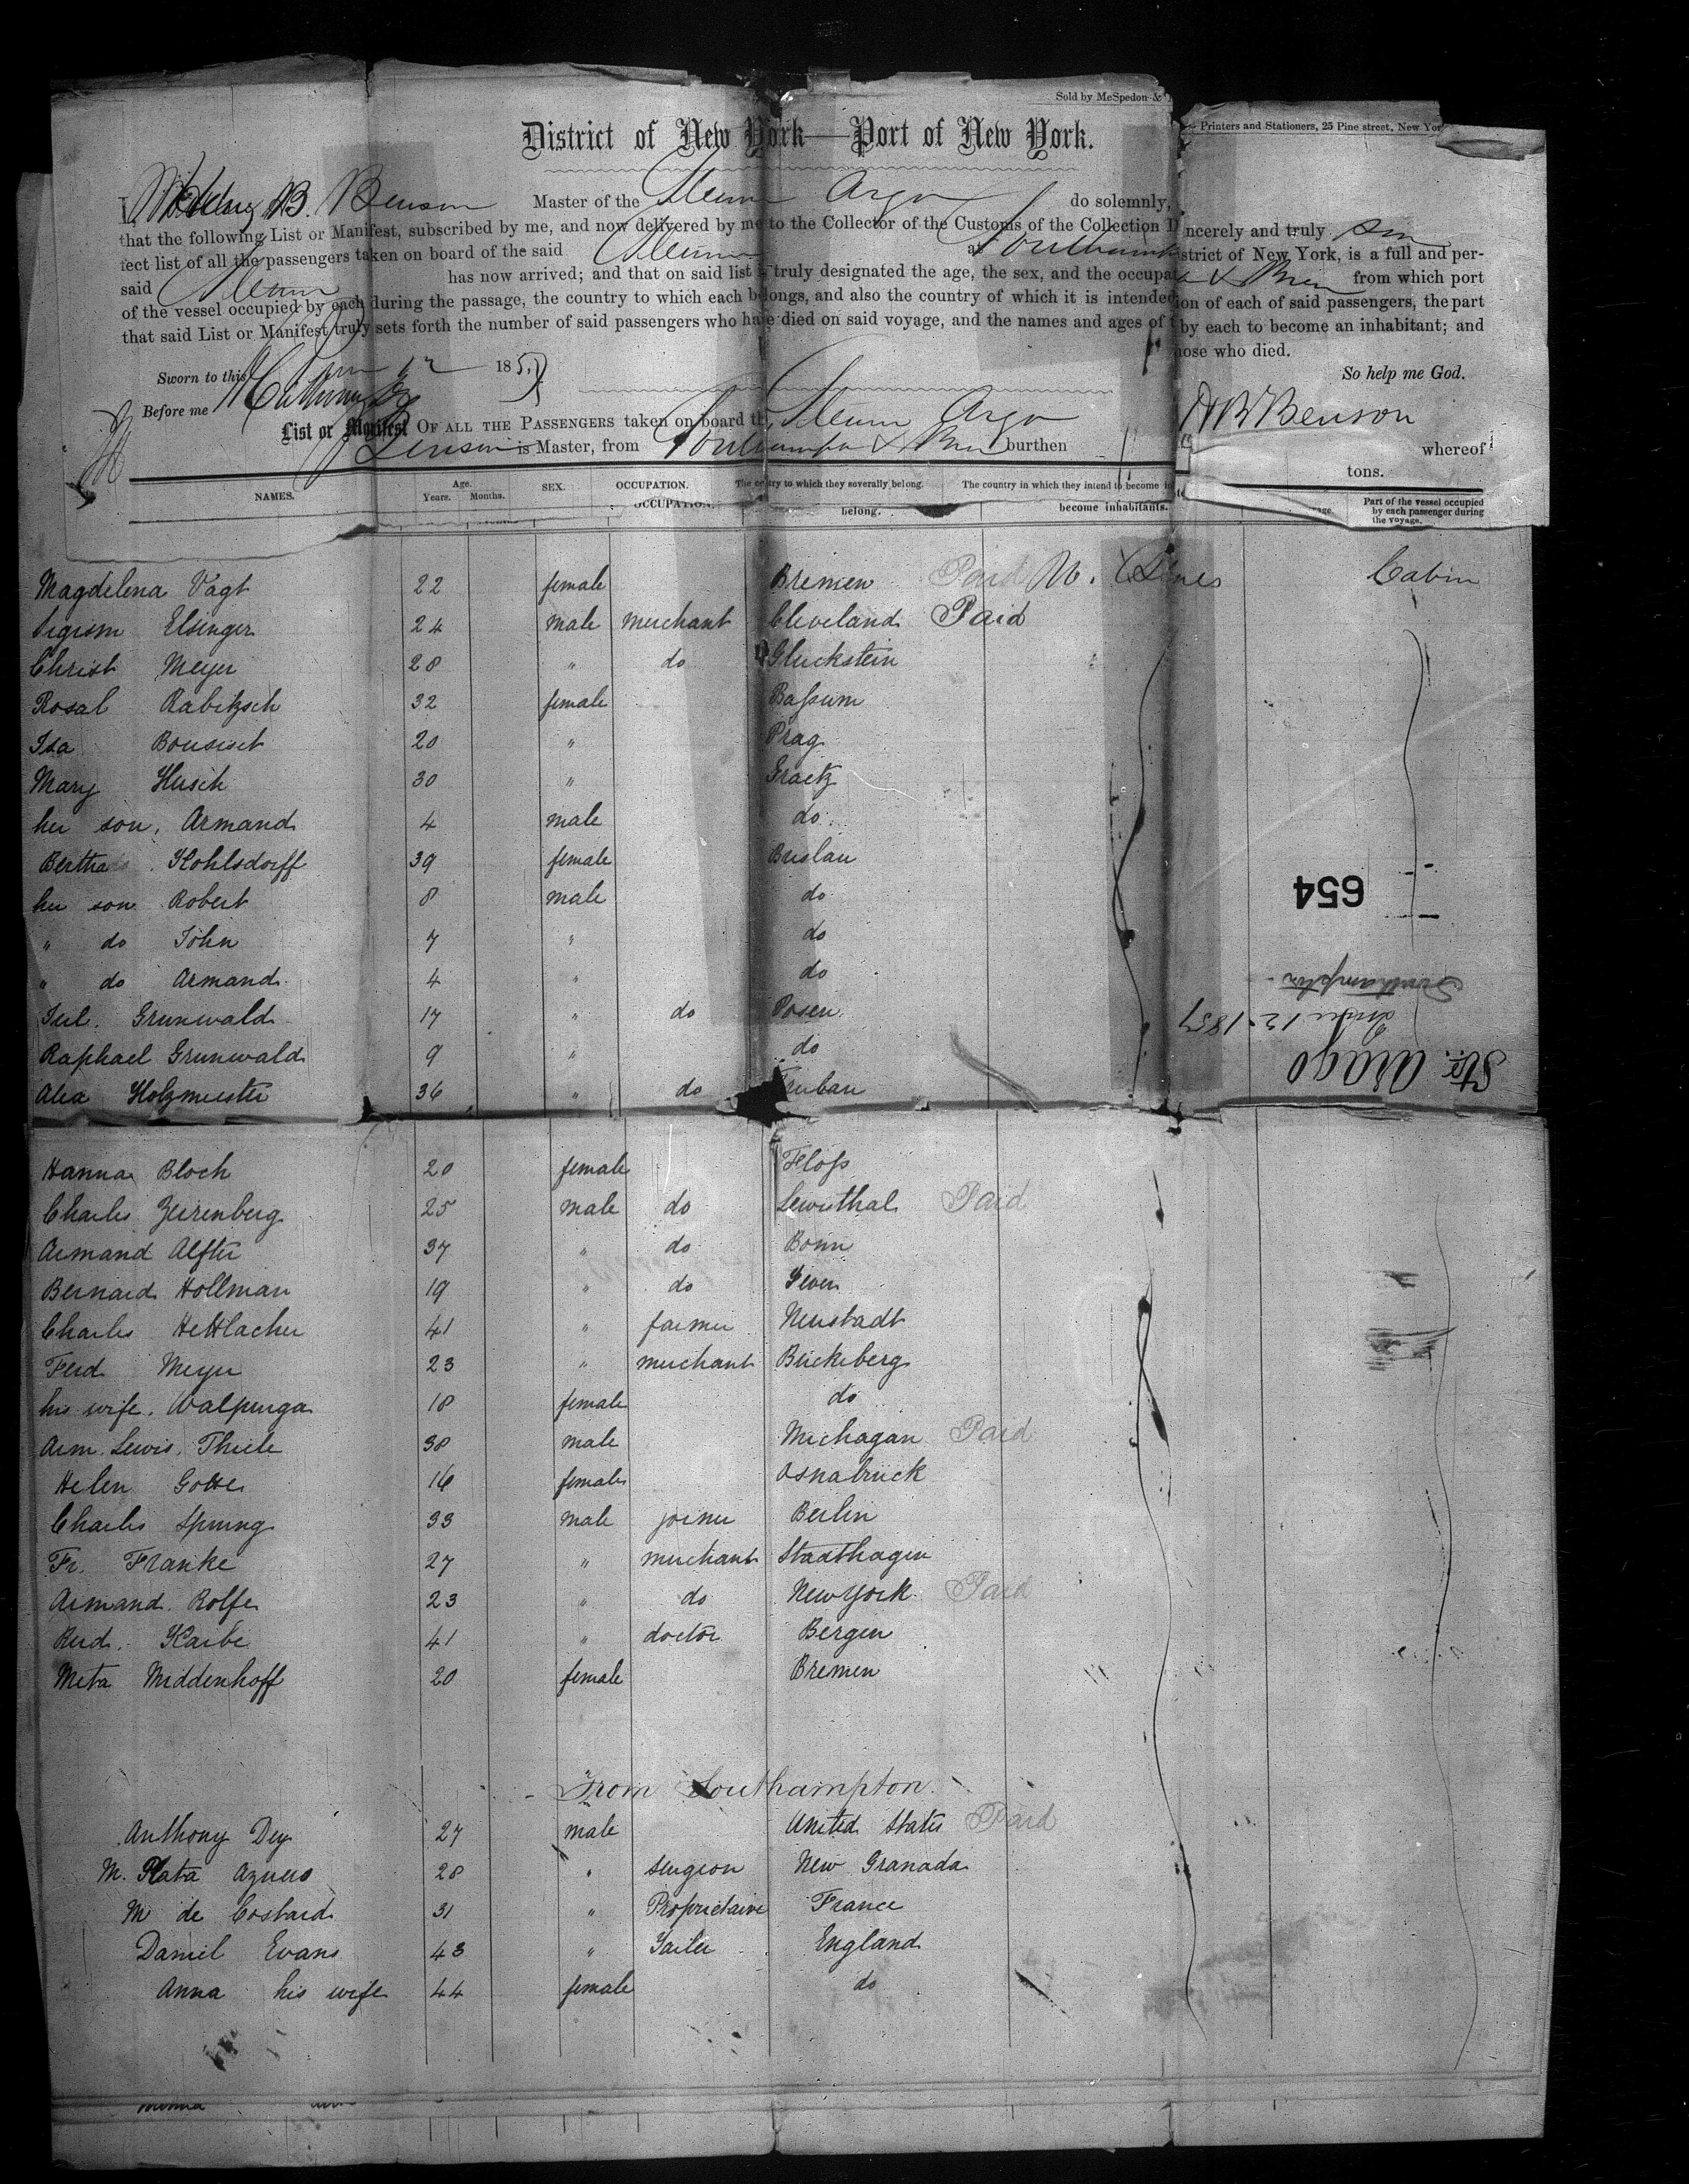 Sold by McSpedon &
Printers and Stationers, 25 Pine street, New Yor
District of New York—Port of New York.
I, B. Benson Master of the Steamer Argo do solemnly, sincerely and truly
that the following List or Manifest, subscribed by me, and now delivered by me to the Collector of the Customs of the Collection District of New York, is a full and per-
fect list of all the passengers taken on board of the said Steamer at Southampton & Bremen from which port
said Steamer has now arrived; and that on said list is truly designated the age, the sex, and the occupation of each of said passengers, the part
of the vessel occupied by each during the passage, the country to which each belongs, and also the country of which it is intended by each to become an inhabitant; and
that said List or Manifest truly sets forth the number of said passengers who have died on said voyage, and the names and ages of those who died.
Sworn to this 185 So help me God.
Before me HB Benson
List or Manifest OF ALL THE PASSENGERS taken on board the Steamer Argo whereof
Benson is Master, from Southampton & Bremen burthen tons.
NAMES. Age. Years. Months. SEX. OCCUPATION. The country to which they severally belong. The country in which they intend to become in
OCCUPATION. belong. become inhabitants. Part of the vessel occupied by each passenger during the voyage.
Magdelena Vagt 22 female Bremen Paid U. States Cabin
Sigism Elsinger 24 male merchant Cleveland Paid
Christ Meyer 28 " do Gluckstein
Rosal Rabitzsch 32 female Bassum
Isa 20 " Prag
Mary Husch 30 " Graetz
her son, Armand 4 male do
Bertha Kohlsdorff 39 female Breslau
her son Robert 8 male do
" do John 7 " do
" do Armand 4 " do
Jul. Grunwald 17 " do Posen
Raphael Grunwald 9 " do
Alex Holzmeister 36 " do
654
Southampton
June 12. 1857
Str. Arago
Hanna Bloch 20 female Floss
Charles Zeirenberg 25 male do Lewithal Paid
Armand Alfter 37 " do Bonn
Bernard Hollman 19 " do Jever
Charles Hettlacher 41 " farmer Neustadt
Ferd Meyer 23 " merchant Bückeberg
his wife, Walpurga 18 female do
Arm. Lewis Thiele 38 male Michagan Paid
Helen Gotte 16 female Osnabruck
Charles Sprung 33 male joiner Berlin
Fr. Franke 27 " merchant Stadthagen
Armand Rolfe 23 " do New York Paid
Rud. Karbe 41 " doctor Bergen
Meta Middenhoff 20 female Bremen
From Southampton
Anthony Dey 27 male United States Paid
M. Plata Azuero 28 " surgeon New Granada
M de Costard 31 " Proprietaire France
Daniel Evans 43 " Tailer England
Anna his wife 44 female do